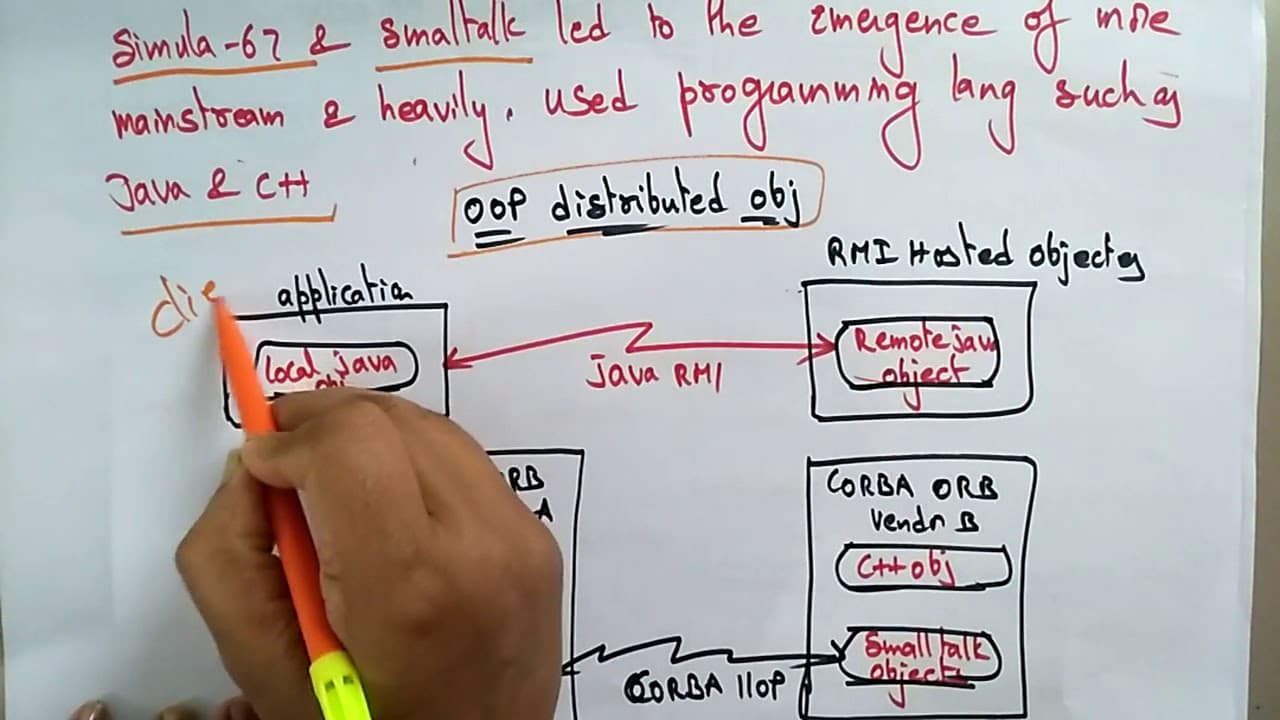 Simula-67 & smalltalk led to the Emergence of more
mainstream & heavily. used programming lang such as
Java & C++
OOP distributed obj
RMI Hosted Objects
application
clie
Local java
obj
Java RMI
Remote java
object
RB
A
CORBA ORB
Vendor B
C++ obj
Small talk
objects
CORBA IIOP